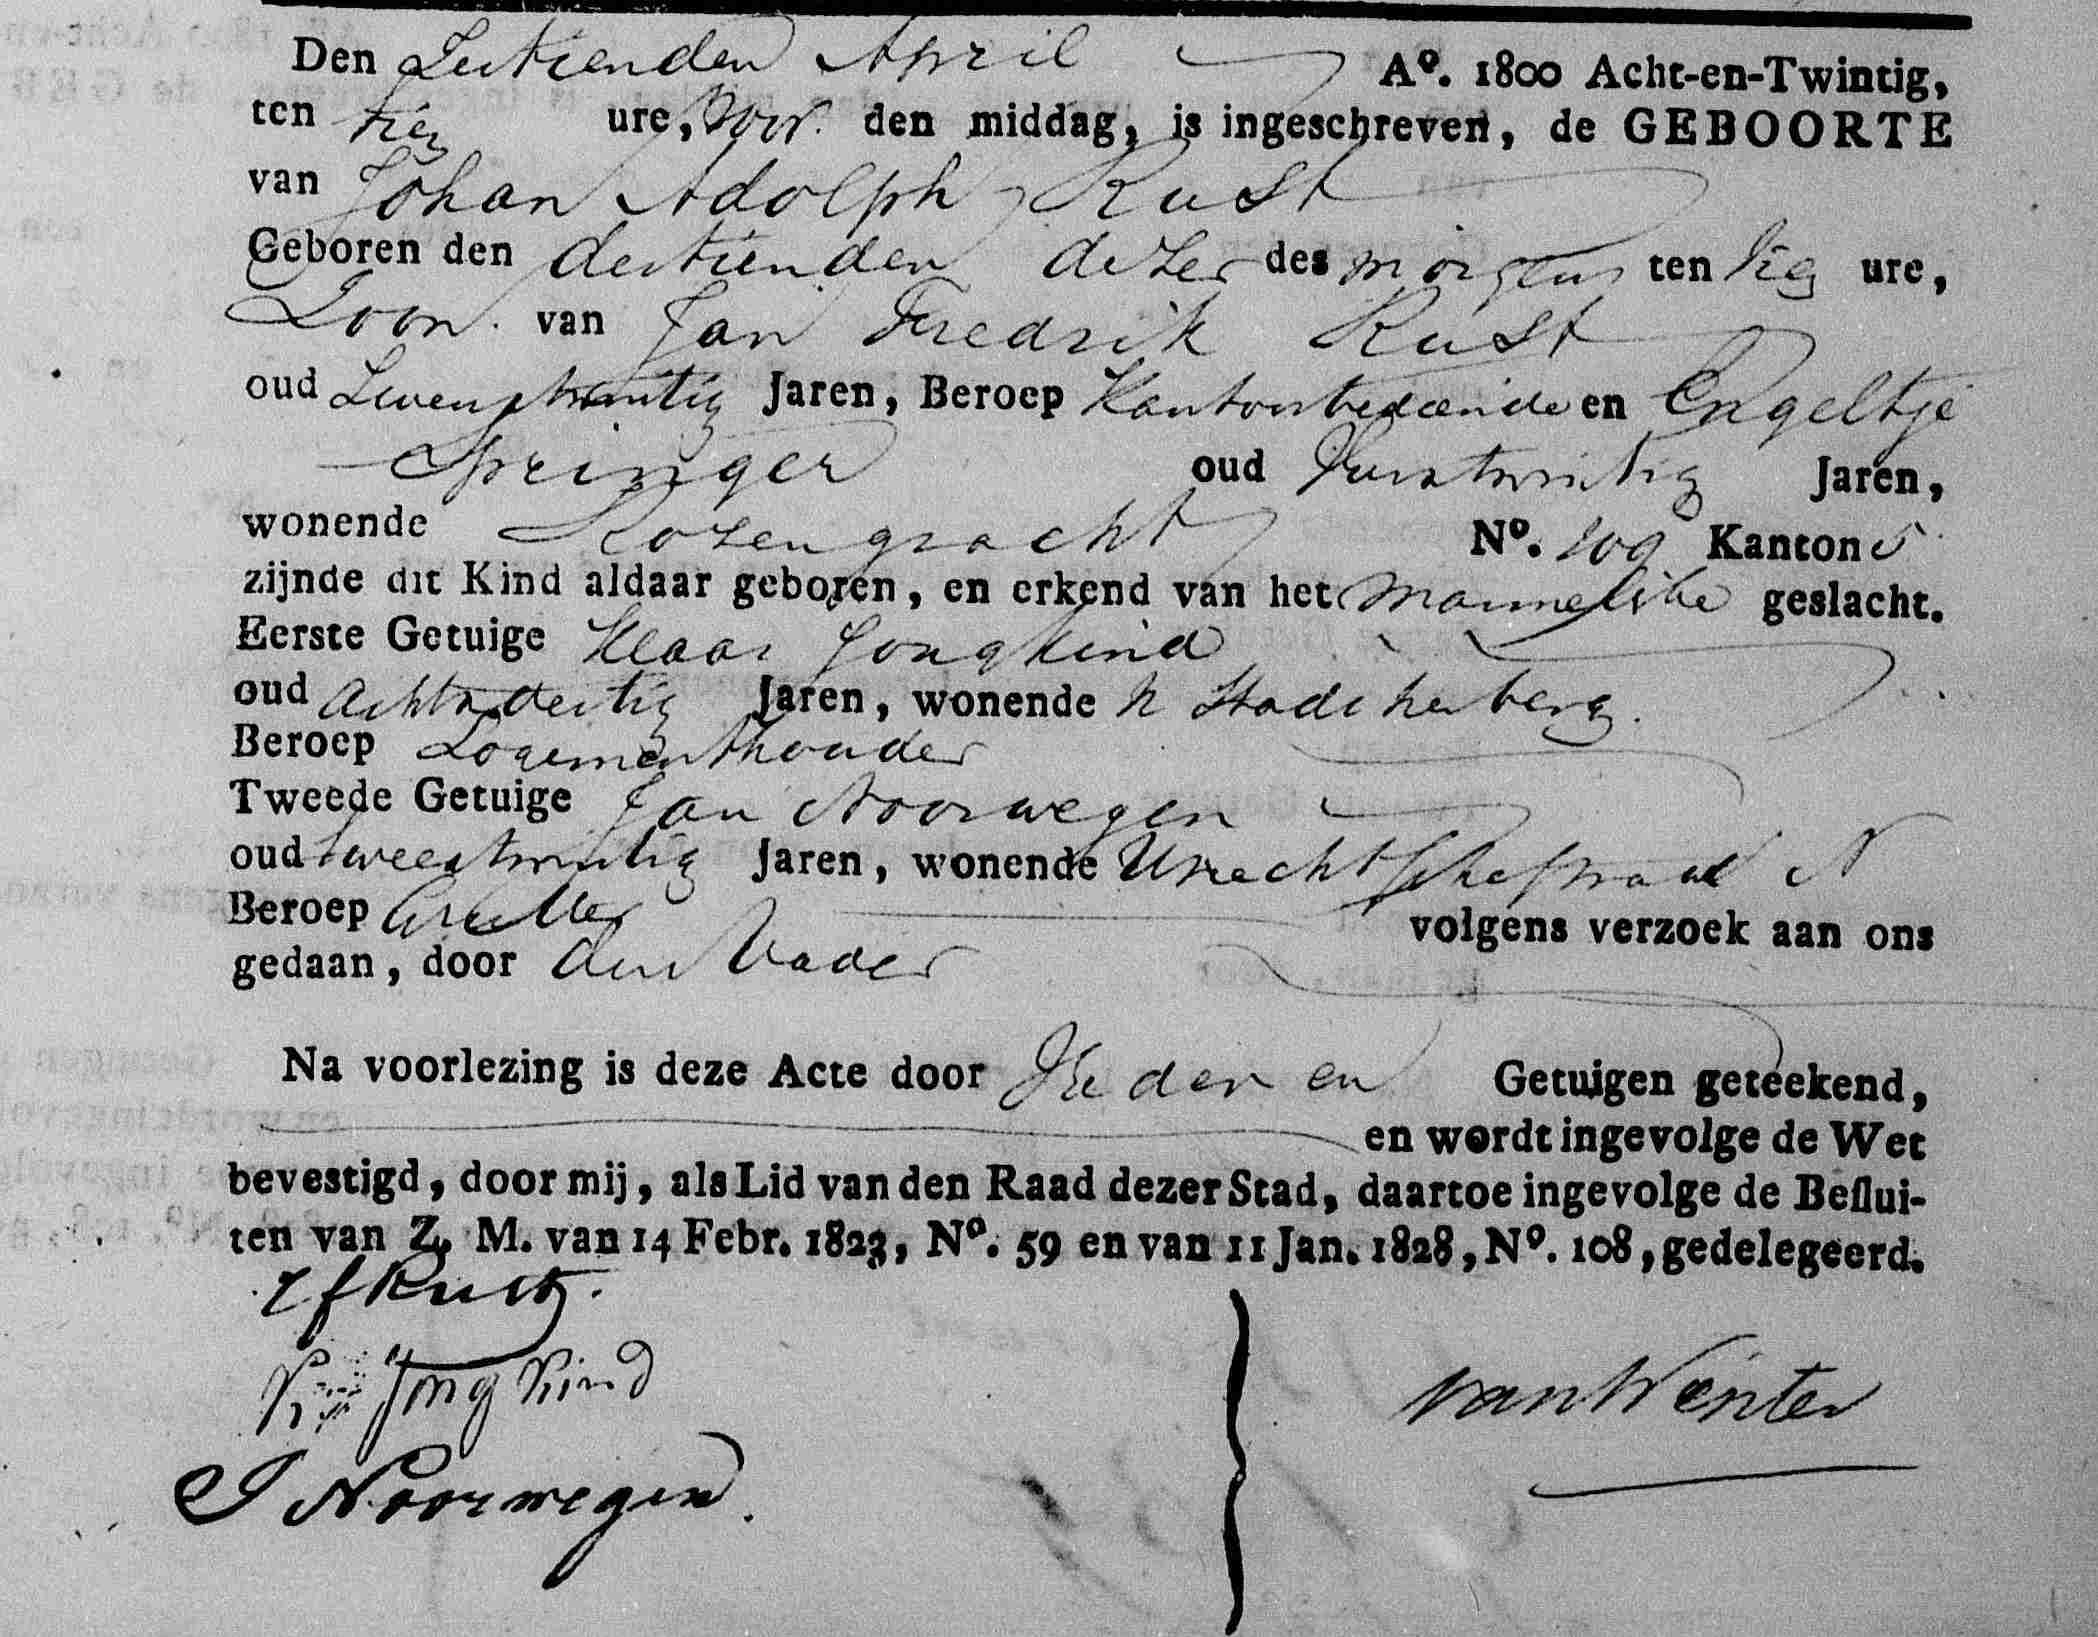 Den Zestienden April A°. 1800 Acht-en-Twintig,
ten tien ure, voor den middag, is ingeschreven, de GEBOORTE
van Johan Adolph Rust
Geboren den dertienden dezer des morgens ten tien ure,
Zoon van Jan Fredrik Rust
oud Zevenentwintig Jaren, Beroep Kantoorbediende en Engeltje
Springer oud Jaren,
wonende Rozengracht N°. 109 Kanton 5
zijnde dit Kind aldaar geboren, en erkend van het Mannelijke geslacht.
Eerste Getuige Klaas Jongkind
oud Achtendertig Jaren, wonende N Stads herberg.
Beroep Logementhouder
Tweede Getuige Jan Noorwegen
oud tweeentwintig Jaren, wonende Utrechtschestraat N
Beroep volgens verzoek aan ons
gedaan, door den Vader
Na voorlezing is deze Acte door Ieder en Getuigen geteekend,
en wordt ingevolge de Wet
bevestigd, door mij, als Lid van den Raad dezer Stad, daartoe ingevolge de Beslui-
ten van Z. M. van 14 Febr. 1823, N°. 59 en van 11 Jan. 1828, N°. 108, gedelegeerd.
J F Rust
Jongkind
van Winter
J Noorwegen.